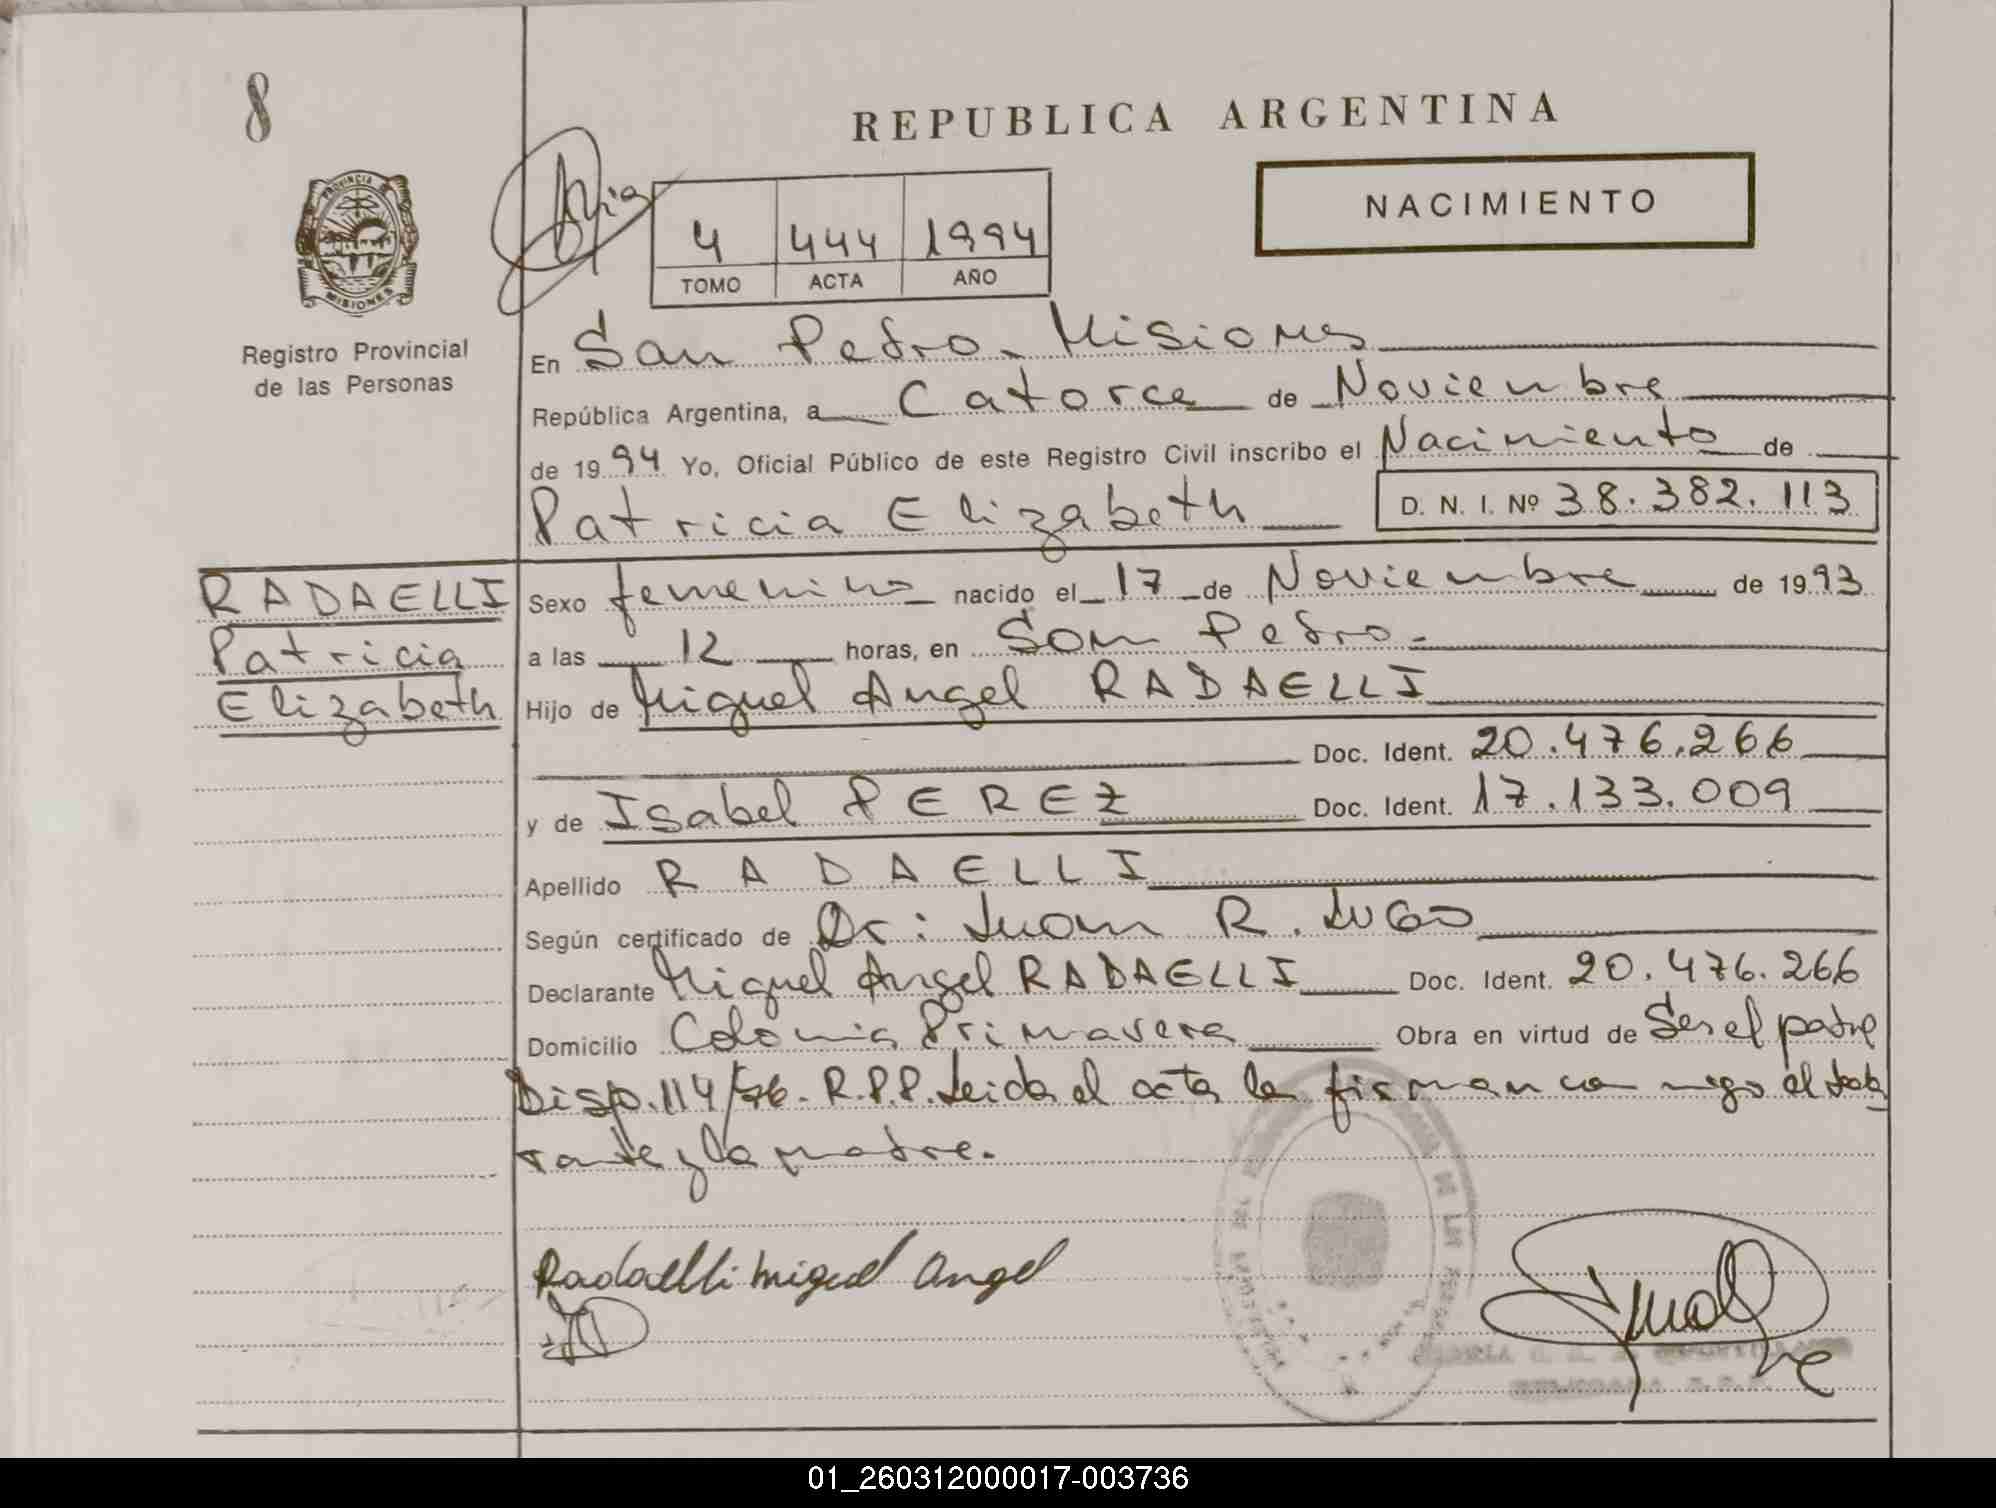 8
REPUBLICA ARGENTINA
NACIMIENTO
PROVINCIA DE
MISIONES
4 444 1994
TOMO ACTA AÑO
Registro Provincial
de las Personas
En San Pedro - Misiones
República Argentina, a Catorce de Noviembre
de 1994 Yo, Oficial Público de este Registro Civil inscribo el Nacimiento de
Patricia Elizabeth D. N. I. Nº 38.382.113
RADAELLI
Patricia
Elizabeth
Sexo femenino nacido el 17 de Noviembre de 1993
a las 12 horas, en San Pedro.-
Hijo de Miguel Angel RADAELLI
Doc. Ident. 20.476.266
y de Isabel PEREZ Doc. Ident. 17.133.009
Apellido RADAELLI
Según certificado de Dr: Juan R. LUGO
Declarante Miguel Angel RADAELLI Doc. Ident. 20.476.266
Domicilio Colonia Primavera Obra en virtud de Ser el padre
Disp. 114/76. R.P.P. Leida el acta la firman conmigo el decla
rante y la madre.
Radaelli Miguel Angel
01_260312000017-003736